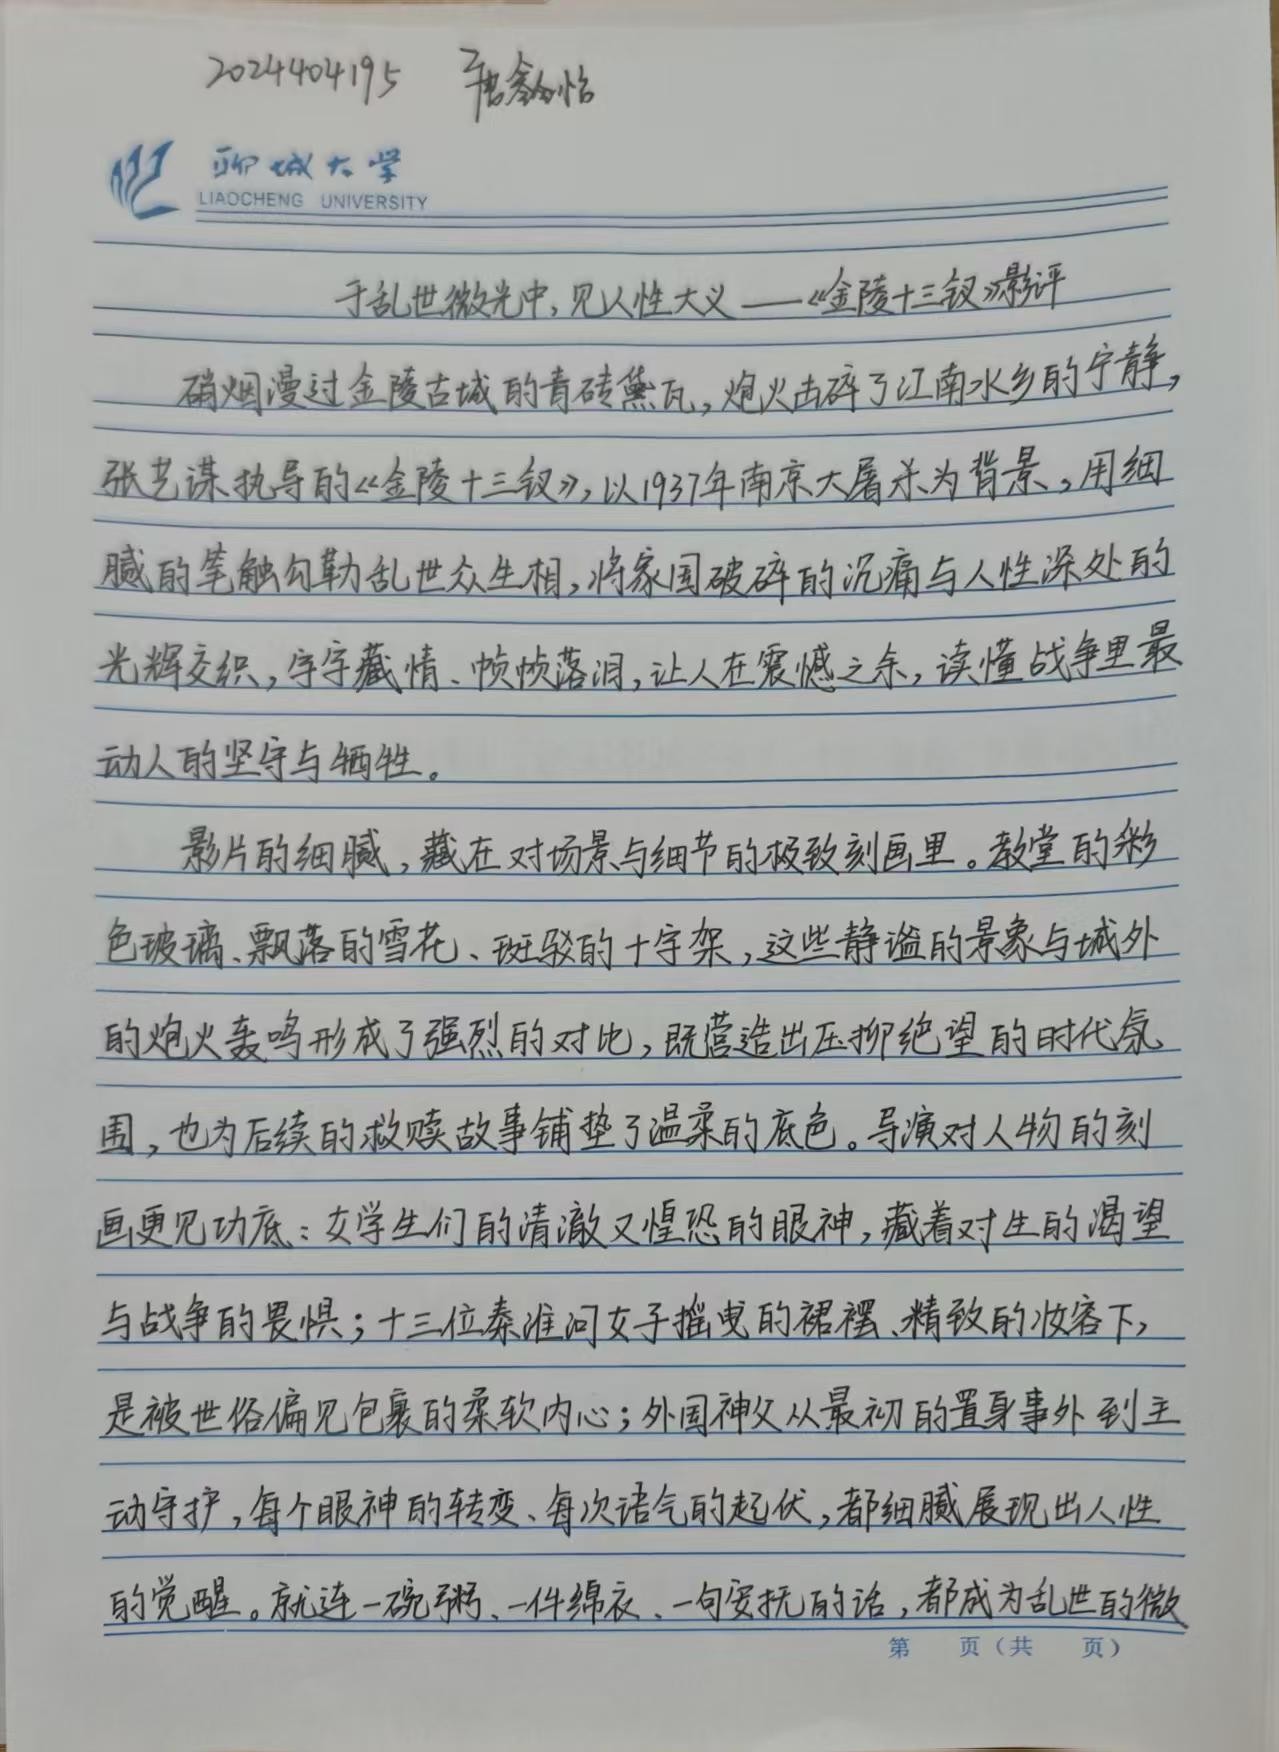 2024404195 唐鑫怡
聊城大学
LIAOCHENG UNIVERSITY
于乱世微光中,见人性大义——《金陵十三钗》影评
硝烟漫过金陵古城的青砖黛瓦,炮火击碎了江南水乡的宁静,
张艺谋执导的《金陵十三钗》,以1937年南京大屠杀为背景,用细
腻的笔触勾勒乱世众生相,将家国破碎的沉痛与人性深处的
光辉交织,字字藏情、帧帧落泪,让人在震憾之余,读懂战争里最
动人的坚守与牺牲。
影片的细腻,藏在对场景与细节的极致刻画里。教堂的彩
色玻璃、飘落的雪花、斑驳的十字架,这些静谧的景象与城外
的炮火轰鸣形成了强烈的对比,既营造出压抑绝望的时代氛
围,也为后续的救赎故事铺垫了温柔的底色。导演对人物的刻
画更见功底:女学生们的清澈又惶恐的眼神,藏着对生的渴望
与战争的畏惧;十三位秦淮河女子摇曳的裙摆、精致的妆容下,
是被世俗偏见包裹的柔软内心;外国神父从最初的置身事外到主
动守护,每个眼神的转变、每次语气的起伏,都细腻展现出人性
的觉醒。就连一碗粥、一件绵衣、一句安抚的话,都成为乱世的微
第 页(共 页)